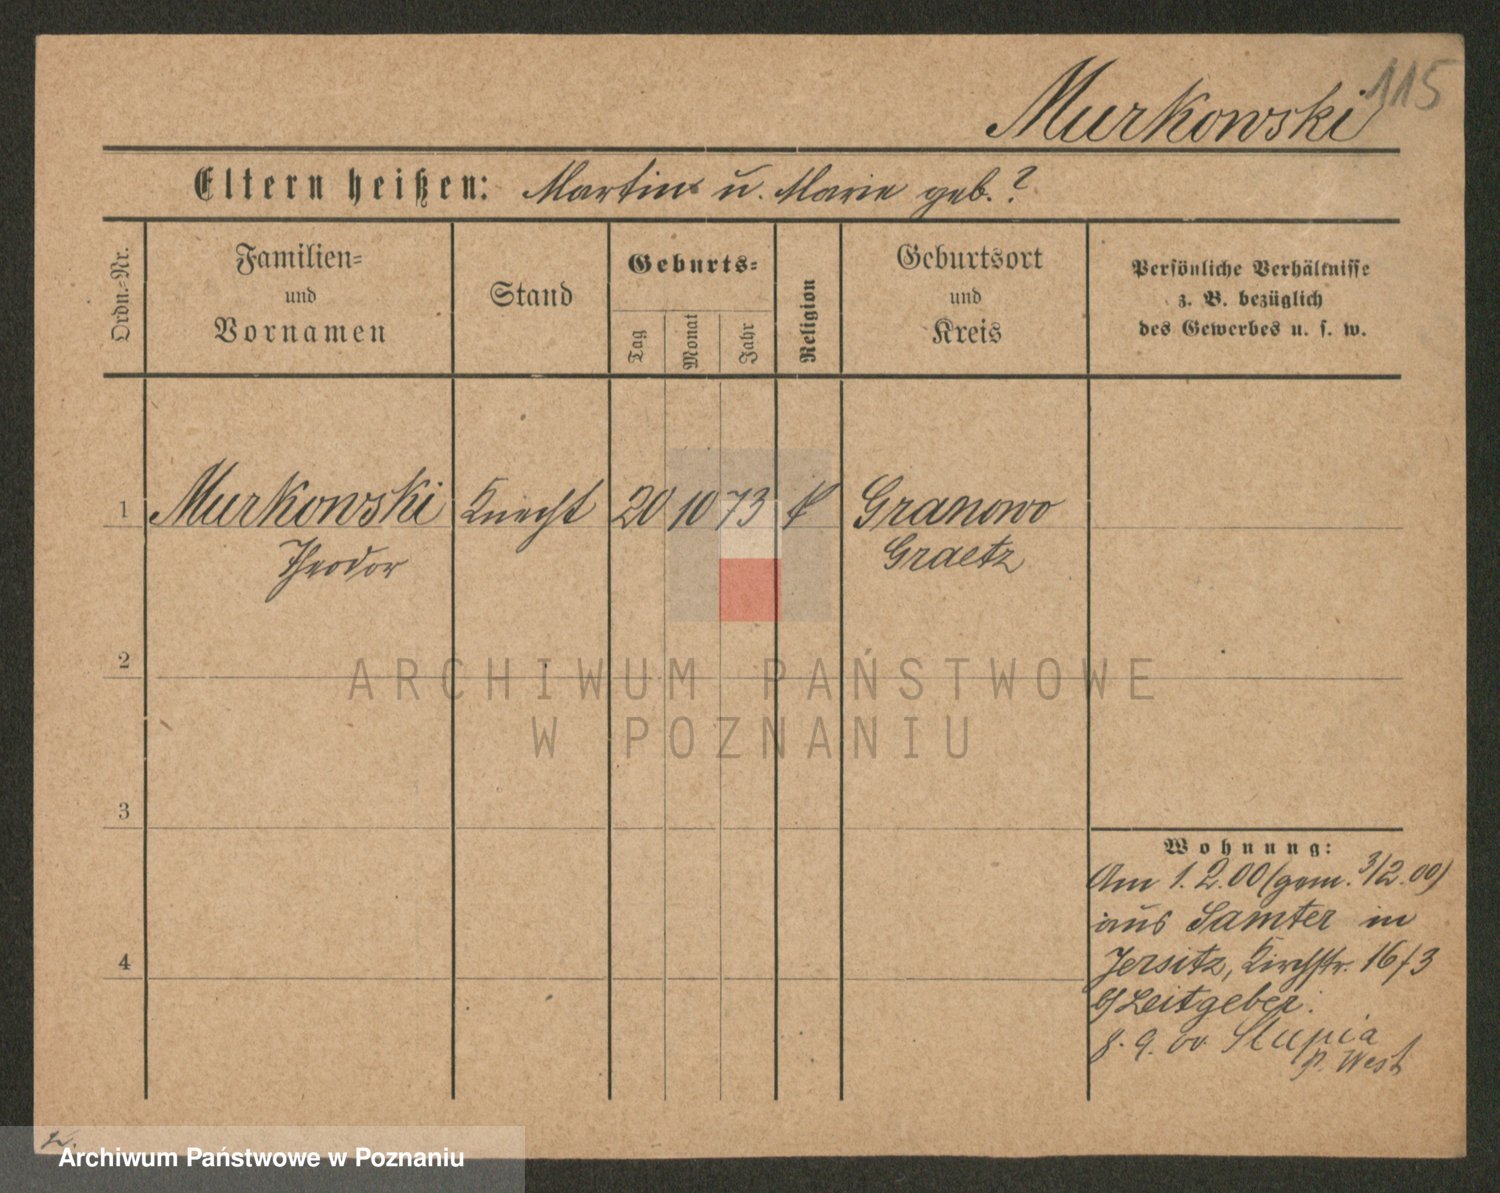 115
Murkowski
Eltern heißen: Martin u. Marie geb. ?
Ordn.=Nr.
Familien=
und
Vornamen
Stand
Geburts=
Tag
Monat
Jahr
Religion
Geburtsort
und
Kreis
Persönliche Verhältnisse
z. B. bezüglich
des Gewerbes u. s. w.
1 Murkowski Knecht 20 10 73 Granowo
Theodor Graetz
2
ARCHIWUM PAŃSTWOWE
W POZNANIU
3
Wohnung:
Am 1. 2. 00 (gem. 3/2. 00)
aus Samter in
4
Jersitz, Kirchstr. 16/3
b/ Leitgeber.
8. 9. 00 Slupia
P. West
Archiwum Państwowe w Poznaniu